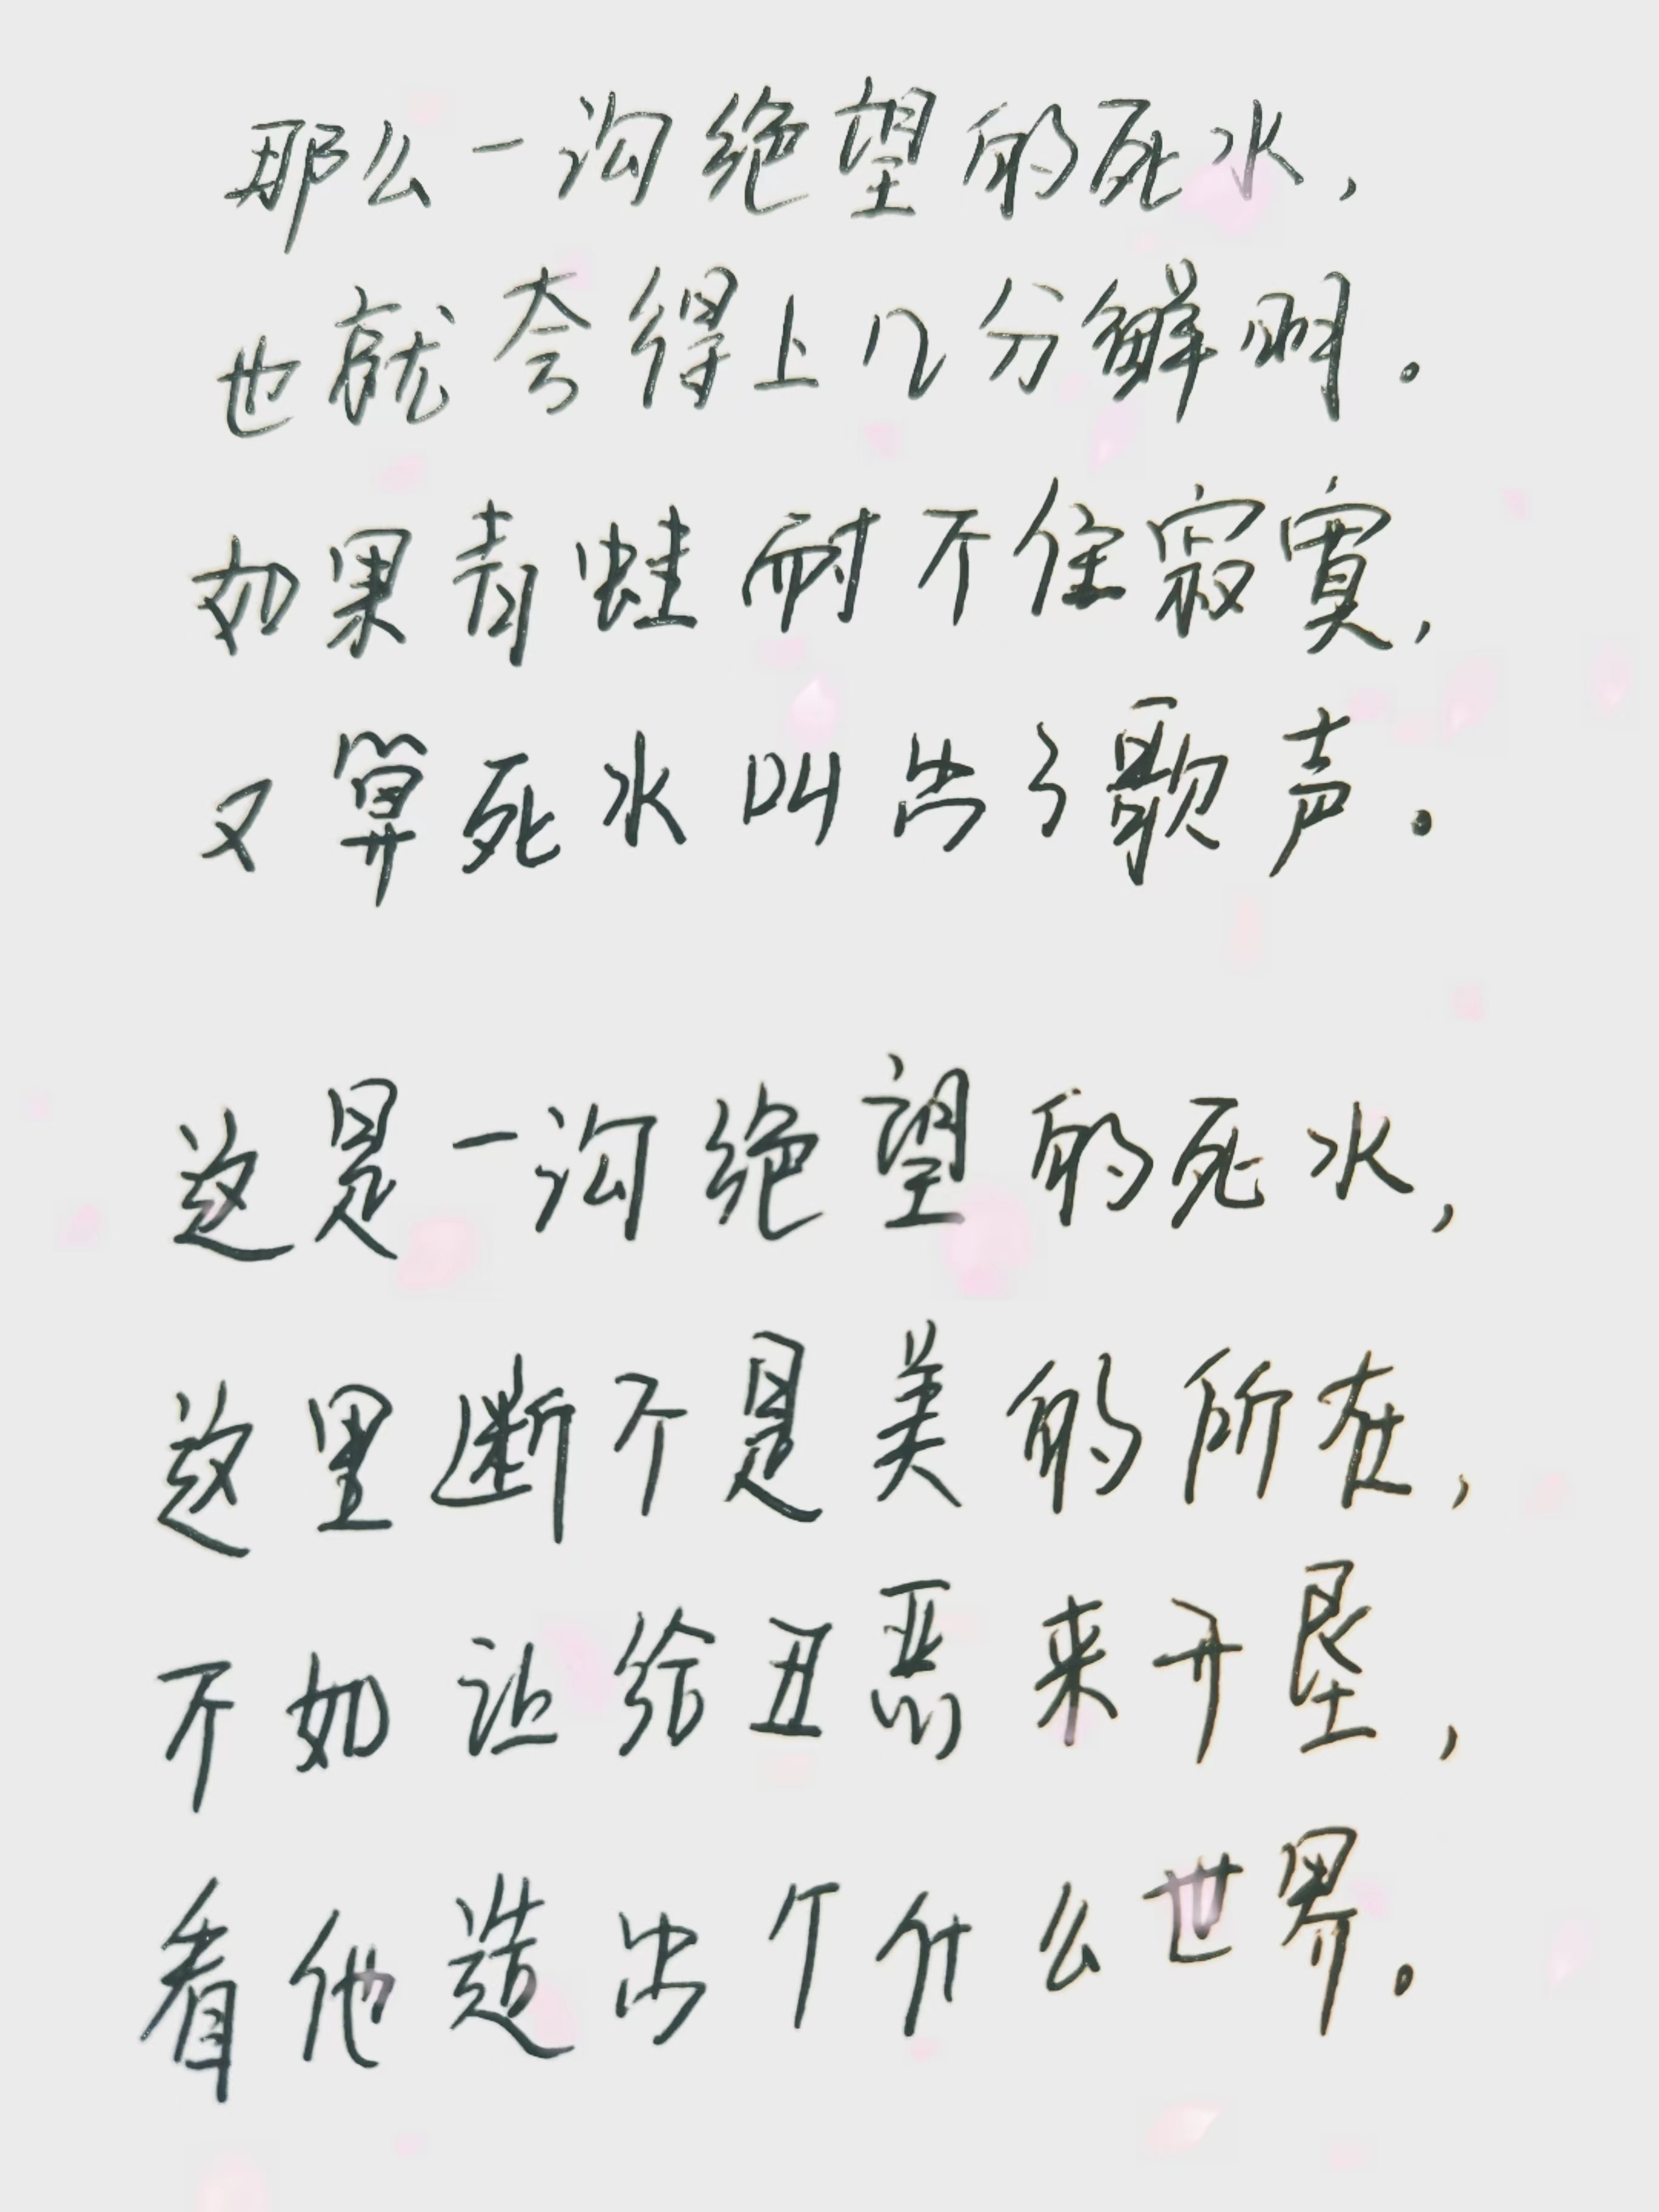 那么一沟绝望的死水，
也就夸得上几分鲜明。
如果青蛙耐不住寂寞，
又算死水叫出了歌声。
这是一沟绝望的死水，
这里断不是美的所在，
不如让给丑恶来开垦，
看他造出个什么世界。